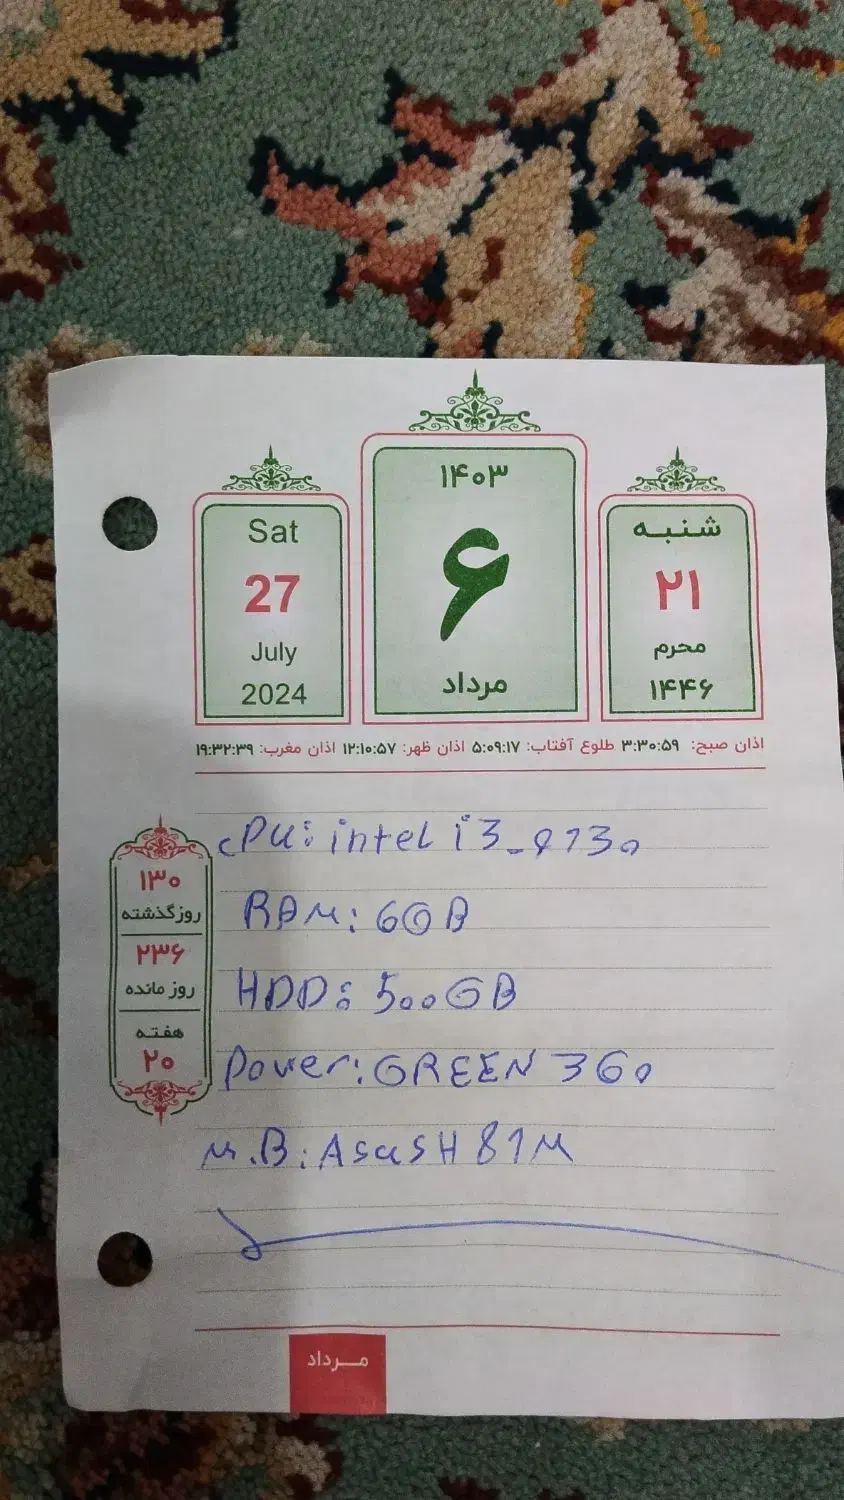 ۱۴۰۳
۶
مرداد
Sat
27
July
2024
شنبه
۲۱
محرم
۱۴۴۶
اذان صبح: ۳:۳۰:۵۹ طلوع آفتاب: ۵:۰۹:۱۷ اذان ظهر: ۱۲:۱۰:۵۷ اذان مغرب: ۱۹:۳۲:۳۹
۱۳۰
روز گذشته
۲۳۶
روز مانده
هفته
۲۰
CPU: intel i3_4130
RAM: 6GB
HDD: 500GB
Power: GREEN 360
M.B: Asus H81M
مرداد